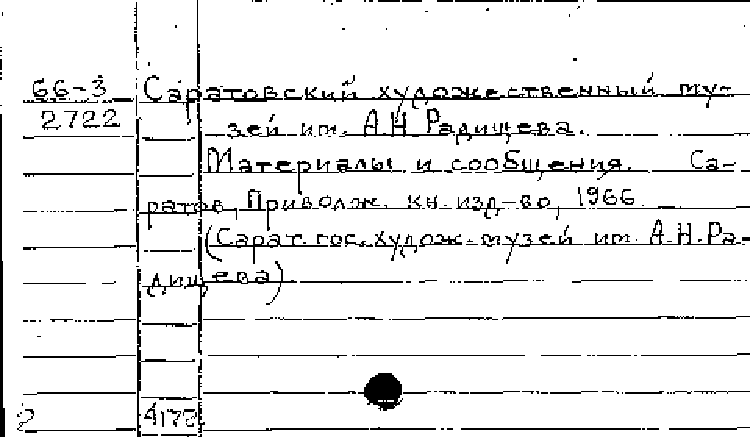 66-3 Саратовский художественный му-
2722 зей им. А.Н. Радищева.
Материалы и сообщения. Са-
ратов, Приволж. кн. изд-во, 1966
(Сарат. гос. худож. музей им. А.Н. Ра-
дищева)
2 4172